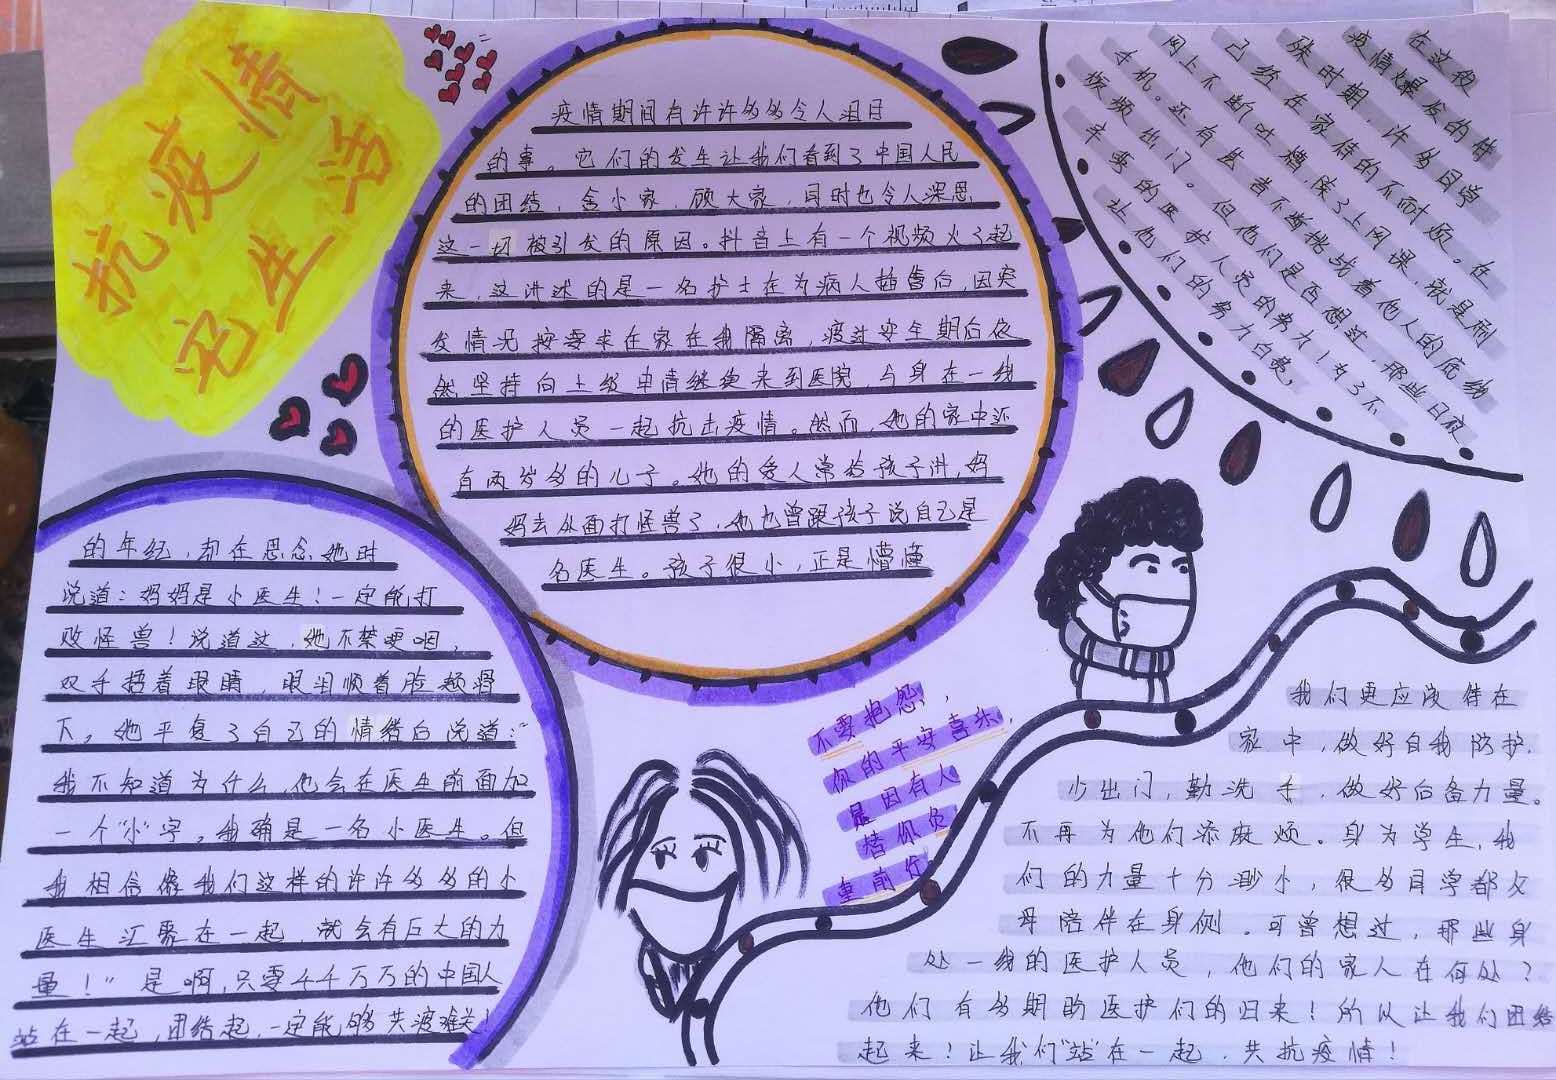 抗疫情
记生活
疫情期间有许许多多令人泪目
的事。它们的发生让我们看到了中国人民
的团结，舍小家，顾大家，同时也令人深思
这一切被引发的原因。抖音上有一个视频火了起
来，这讲述的是一名护士在为病人插管后，因突
发情况按要求在家在我隔离，疫过安全期后依
然坚持向上级申请继续来到医院，与身在一线
的医护人员一起抗击疫情。然而，她的家中还
有两岁多的儿子。她的爱人常给孩子讲，妈
妈去外面打怪兽了，她也曾跟孩子说自己是
名医生。孩子很小，正是懵懂
的年纪，却在思念她时
说道：妈妈是小医生！一定能打
败怪兽！说道这，她不禁哽咽，
双手捂着眼睛，眼泪顺着脸颊滑
下。她平复了自己的情绪后说道：“
我不知道为什么他会在医生前面加
一个“小”字。我确是一名小医生。但
我相信像我们这样的许许多多的小
医生汇聚在一起，就会有巨大的力
量！”是啊，只要千千万万的中国人
站在一起，团结起，一定能够共渡难关！
在这段
疫情爆发的特
殊时期，许多同学
已经在家待的不耐烦。在
网上不断吐槽除了上网课，就是刷
手机。还有或者不断挑战着他人的底线
频频出门。但他们是否想过，那些日夜
辛劳的医护人员的努力！为了不
让他们的努力白费，
我们更应该待在
家中，做好自我防护，
少出门，勤洗手，做好后备力量。
不再为他们添麻烦。身为学生，我
们的力量十分渺小，很多同学都父
母陪伴在身侧。可曾想过，那些身
处一线的医护人员，他们的家人在何处？
他们有多期盼医护们的归来！所以让我们团结
起来！让我们“站”在一起，共抗疫情！
不要抱怨，
你的平安喜乐，
是因有人
替你负
重前行